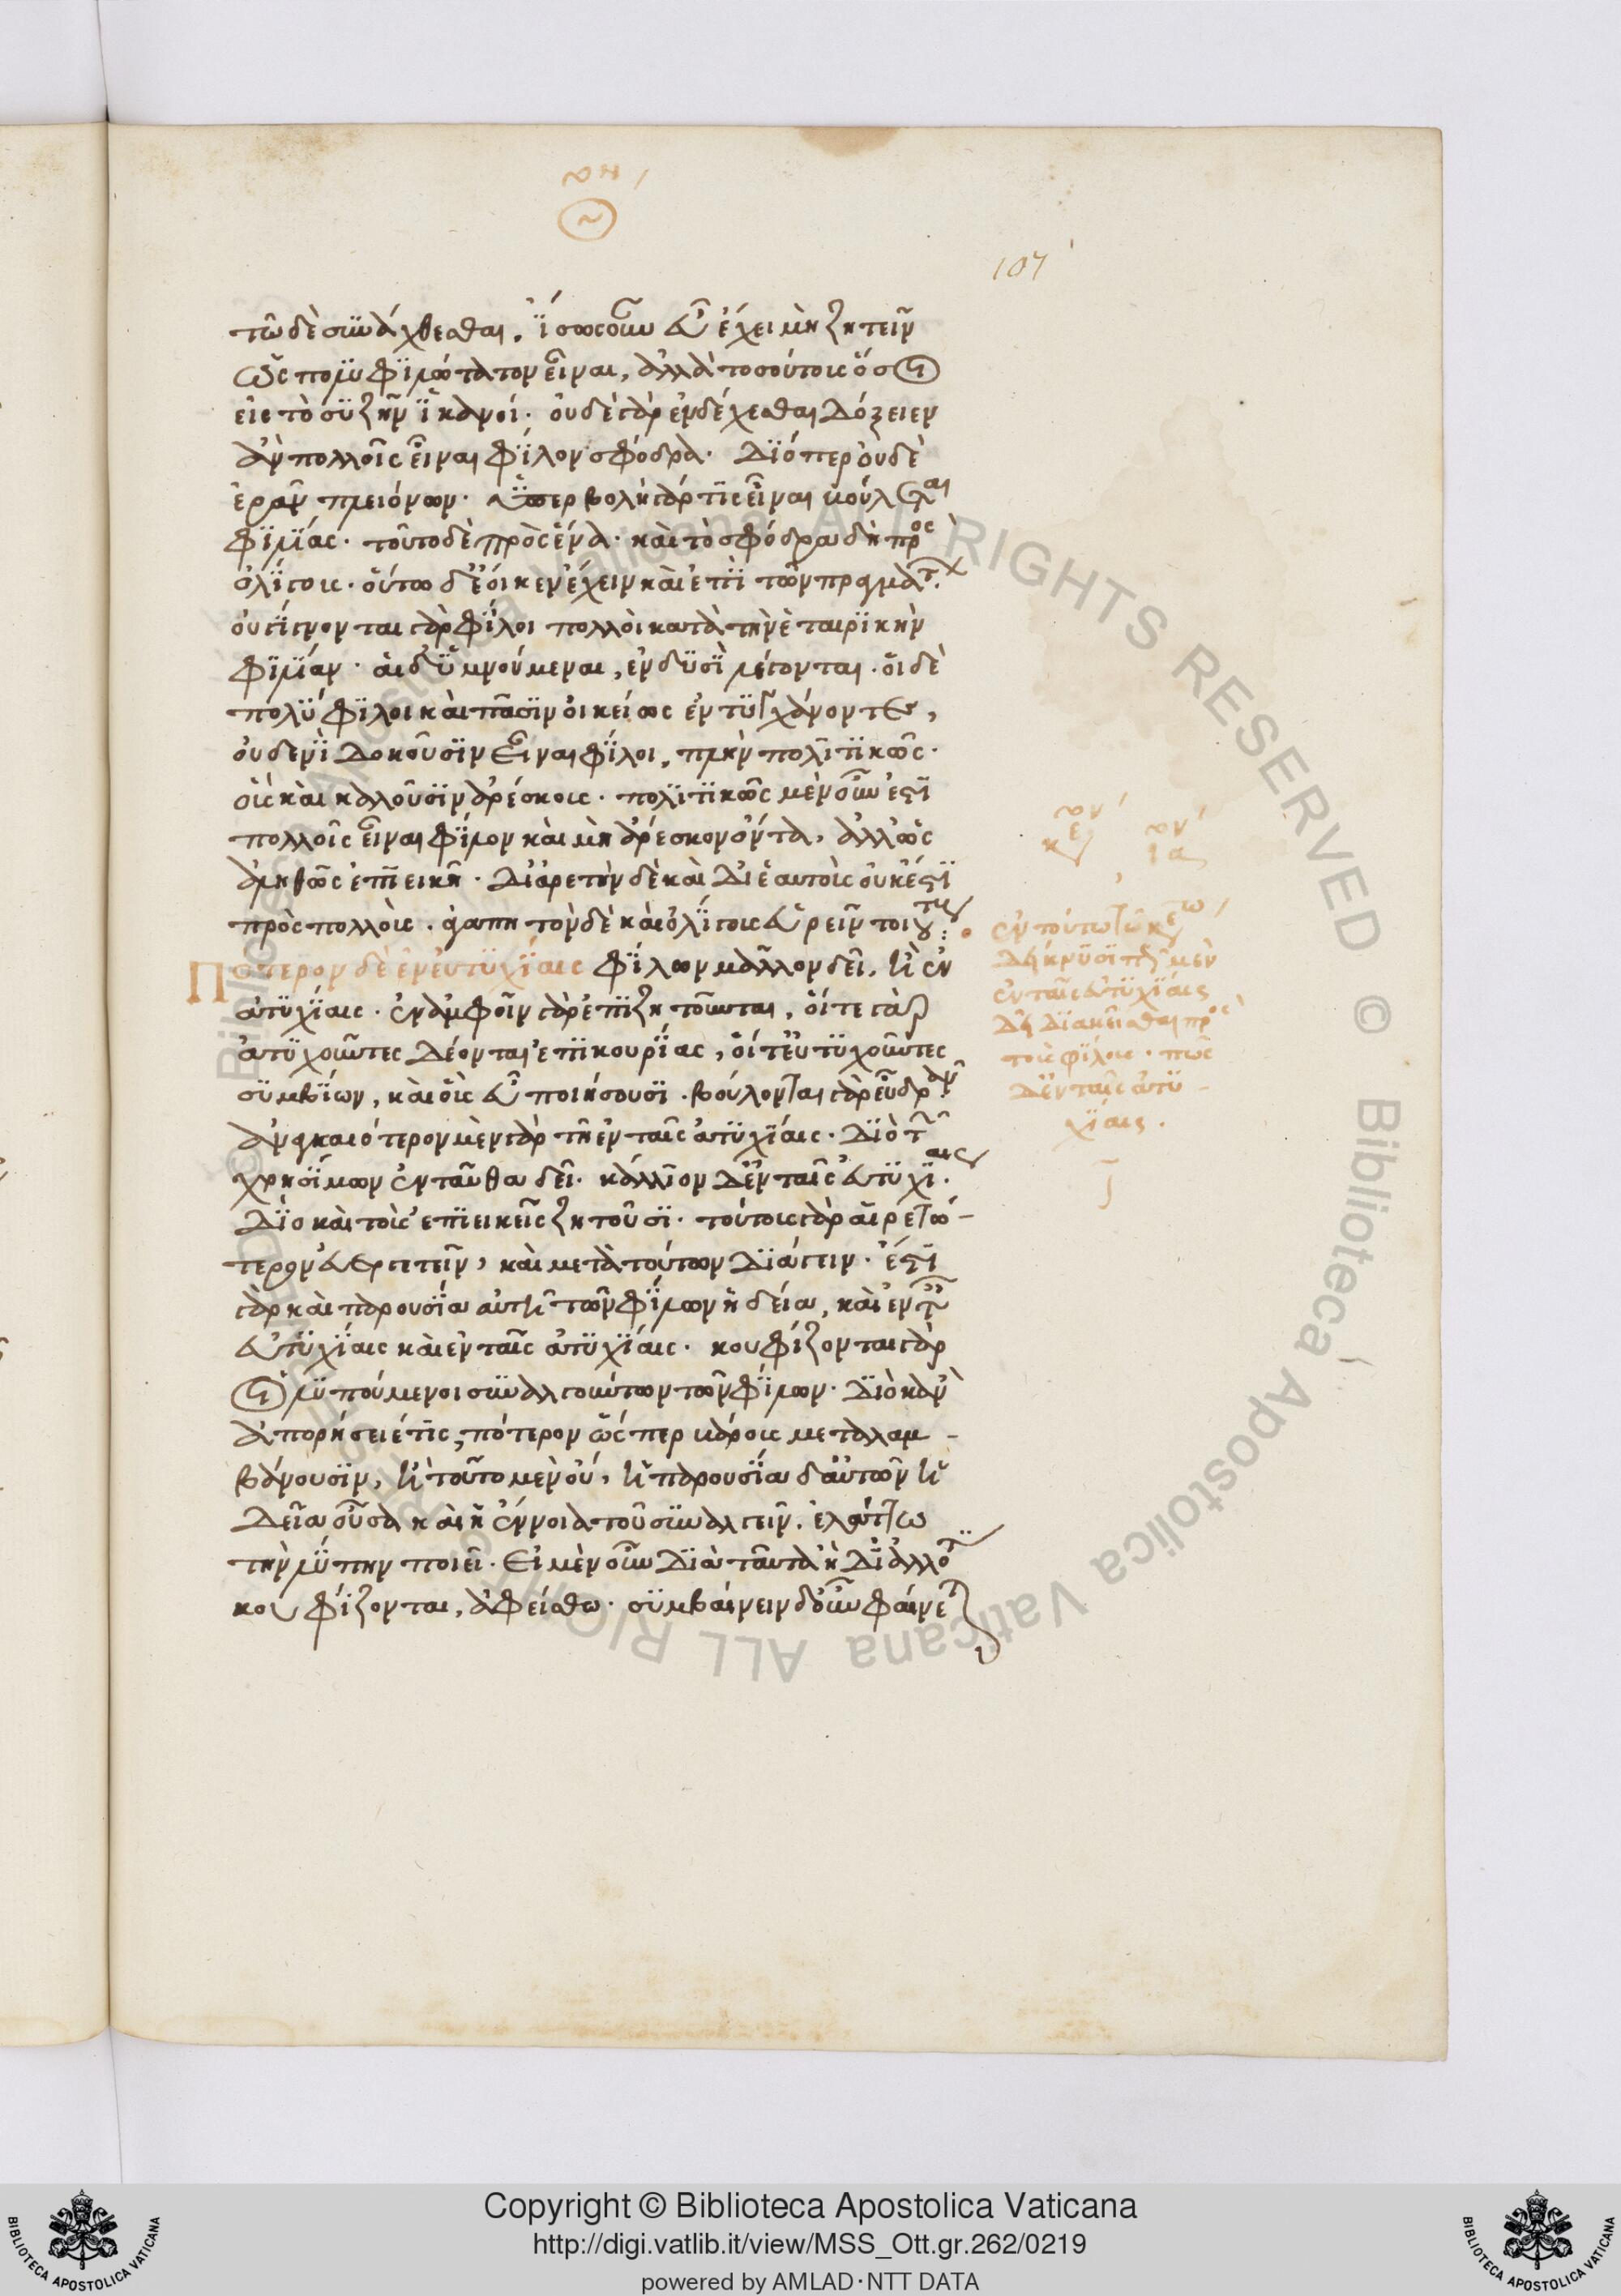 107
τῷ δὲ συνάχθεσθαι. ἴσως οὖν εὖ ἔχει μὴ ζητεῖν
ὡς πολυφιλώτατον εἶναι, ἀλλὰ τοσούτους ὅσοι
εἰς τὸ συζῆν ἱκανοί. οὐδὲ γὰρ ἐνδέχεσθαι δόξειεν
ἂν πολλοῖς εἶναι φίλον σφόδρα. διόπερ οὐδὲ
ἐρᾶν πλειόνων. ὑπερβολὴ γάρ τις εἶναι βούλεται
φιλίας. τοῦτο δὲ πρὸς ἕνα. καὶ τὸ σφόδρα δὴ πρὸς
ὀλίγους. οὕτω δ' ἔοικεν ἔχειν καὶ ἐπὶ τῶν πραγμάτ.
οὐ γίγνονται γὰρ φίλοι πολλοὶ κατὰ τὴν ἑταιρικὴν
φιλίαν. αἱ δ' ὑμνούμεναι, ἐν δυσὶ λέγονται. οἱ δὲ
πολύφιλοι καὶ πᾶσιν οἰκείως ἐντυγχάνοντες,
οὐδενὶ δοκοῦσιν εἶναι φίλοι, πλὴν πολιτικῶς.
οὓς καὶ καλοῦσιν ἀρέσκους. πολιτικῶς μὲν οὖν ἐστὶ
πολλοῖς εἶναι φίλον καὶ μὴ ἄρεσκον ὄντα, ἀλλ' ὡς
ἀληθῶς ἐπιεικῆ. δι' ἀρετὴν δὲ καὶ δι' ἑαυτοὺς οὐκ ἔστι
πρὸς πολλούς. ἀγαπητὸν δὲ καὶ ὀλίγους εὑρεῖν τοιούτους:
Πότερον δὲ ἐν εὐτυχίαις φίλων μᾶλλον δεῖ, ἢ ἐν
ἀτυχίαις. ἐν ἀμφοῖν γὰρ ἐπιζητοῦνται, οἵ τε γὰρ
ἀτυχοῦντες δέονται ἐπικουρίας, οἵ τ' εὐτυχοῦντες
συμβίων, καὶ οὓς εὖ ποιήσουσι. βούλονται γὰρ εὖ δρᾶν.
ἀναγκαιότερον μὲν γὰρ τῇ ἐν ταῖς ἀτυχίαις. διὸ τ
χρησίμων ἐνταῦθα δεῖ. κάλλιον δ' ἐν ταῖς εὐτυχίαις.
διὸ καὶ τοὺς ἐπιεικεῖς ζητοῦσι. τούτους γὰρ αἱρετώ-
τερον εὐεργετεῖν, καὶ μετὰ τούτων διάγειν. ἔστι
γὰρ καὶ παρουσία αὐτὴ τῶν φίλων ἡδεία, καὶ ἐν τ
εὐτυχίαις καὶ ἐν ταῖς ἀτυχίαις. κουφίζονται γὰρ
οἱ λυπούμενοι συναλγούντων τῶν φίλων. διὸ κἂν
ἀπορήσειέ τις, πότερον ὥσπερ βάρους μεταλαμ-
βάνουσιν, ἢ τοῦτο μὲν οὔ, ἡ παρουσία δ' αὐτῶν ἡ
δεῖα οὖσα καὶ ἡ ἔννοια τοῦ συναλγεῖν. ἐλάττω
τὴν λύπην ποιεῖ. εἰ μὲν οὖν διὰ ταῦτα ἢ δι' ἄλλο τι
κουφίζονται, ἀφείσθω. συμβαίνειν δ' οὖν φαίνετ
ἐν τούτῳ τῷ κεφ
δείκνυσι πῶς μὲν
ἐν ταῖς εὐτυχίαις
δεῖ διακεῖσθαι πρὸς
τοὺς φίλους. πῶς
δ' ἐν ταῖς ἀτυ-
χίαις.
Copyright © Biblioteca Apostolica Vaticana
http://digi.vatlib.it/view/MSS_Ott.gr.262/0219
powered by AMLAD·NTT DATA
BIBLIOTECA APOSTOLICA VATICANA
BIBLIOTECA APOSTOLICA VATICANA
© Biblioteca Apostolica Vaticana ALL RIGHTS RESERVED © Biblioteca Apostolica Vaticana ALL RIGHTS RESERVED